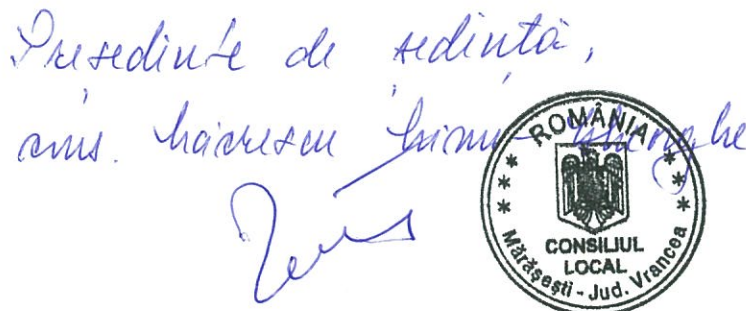 Președinte de ședință,
cons. Gheorghe
ROMÂNIA
CONSILIUL
LOCAL
Mărășești - Jud. Vrancea